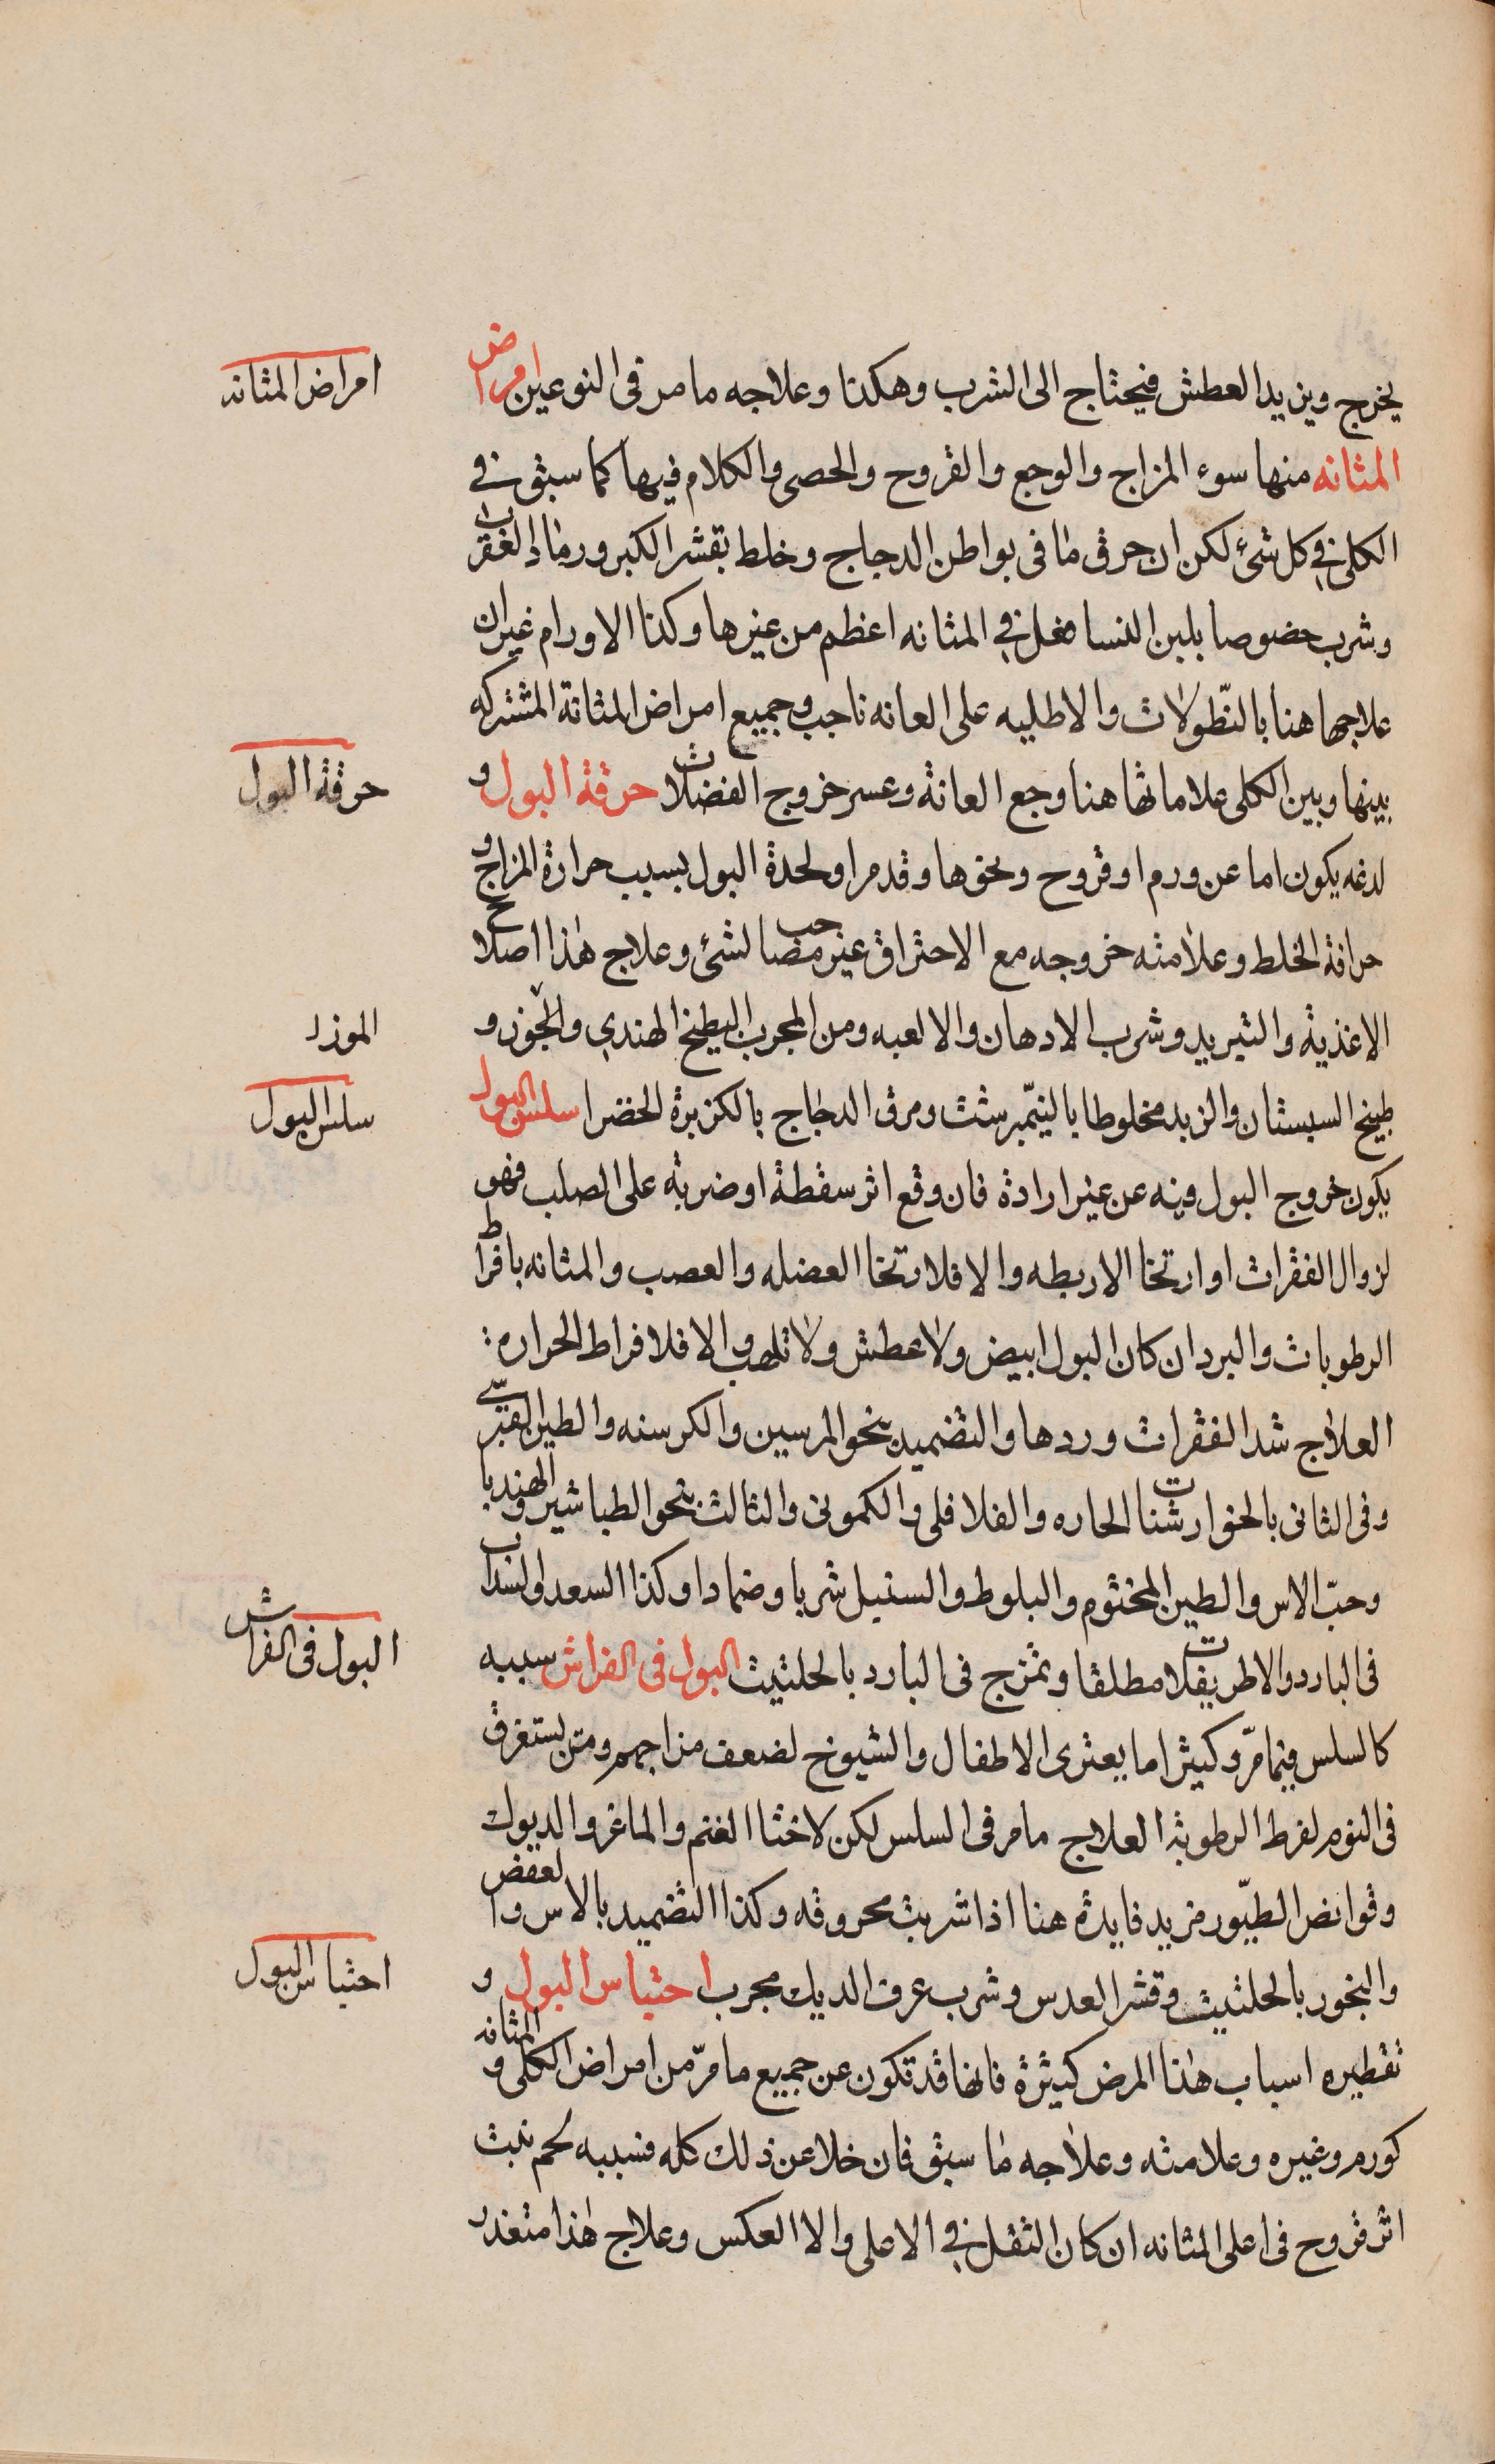 يخرج ويزيد العطش فيحتاج الى الشرب وهكذا وعلاجه ما مر في النوعين امراض
امراض المثانه
المثانه منها سوء المزاج والوجع والقروح والحصى والكلام فيها كما سبق في
الكلى في كل شئ لكن ان حرق ما في بواطن الدجاج وخلط بقشر الكبر ورماد العقرب
وشرب خصوصا بلبن النسا فعل في المثانه اعظم من غيرها وكذا الاورام غير ان
علاجها هنا بالنطولات والاطليه على العانه ناجب وجميع امراض المثانة المشتركه
بينها وبين الكلى علاماتها هنا وجع العانة وعسر خروج الفضلات حرقة البول و
حرقة البول
لدغه يكون اما عن ورم او قروح ونحوها وقد مر او لحدة البول بسبب حرارة المزاج و
حرافة الخلط وعلامته خروجه مع الاحتراق غير مصاحب لشئ وعلاج هذا اصلاح
الاغذية والتبريد وشرب الادهان والالعبه ومن المجرب البطيخ الهندي والجوز و
الموز
طبيخ السبستان والزبد مخلوطا بالنيمبرشت ومرق الدجاج بالكزبرة الخضرا سلس البول
سلس البول
يكون خروج البول فيه عن غير ارادة فان وقع اثر سقطة او ضربة على الصلب فهو
لزوال الفقرات او ارتخا الاربطه والا فلارتخا العضله والعصب والمثانه بافراط
الرطوبات والبرد ان كان البول ابيض ولا عطش ولا تلهب والا فلافراط الحراره :
العلاج شد الفقرات وردها والتضميد بنحو المرسين والكرسنه والطين القبرسي
وفي الثاني بالجوارشنات الحاره والفلافلى والكمونى والثالث بنحو الطباشير والهندبا
وحب الاس والطين المختوم والبلوط والسنبل شربا وضمادا وكذا السعد والسذاب
في البارد والاطريفلات مطلقا وتمزج في البارد بالحلتيت البول في الفراش سببه
البول في الفراش
كالسلس فيما مر وكثيرا ما يعترى الاطفال والشيوخ لضعف مزاجهم ومن يستغرق
في النوم لفرط الرطوبة العلاج ما مر في السلس لكن لاخثا الغنم والماعز والديوك
وقوانص الطيور مزيد فايده هنا اذا شربت محروقه وكذا التضميد بالاس والعفص
والبخور بالحلتيت وقشر العدس وشرب عرف الديك مجرب احتباس البول و
احتباس البول
تقطيره اسباب هذا المرض كثيرة فانها قد تكون عن جميع ما مر من امراض الكلى والمثانه
كورم وغيره وعلامته وعلاجه ما سبق فان خلا عن ذلك كله فسببه لحم نبت
اثر قروح في اعلى المثانه ان كان الثقل في الاعلى والا العكس وعلاج هذا متعذر